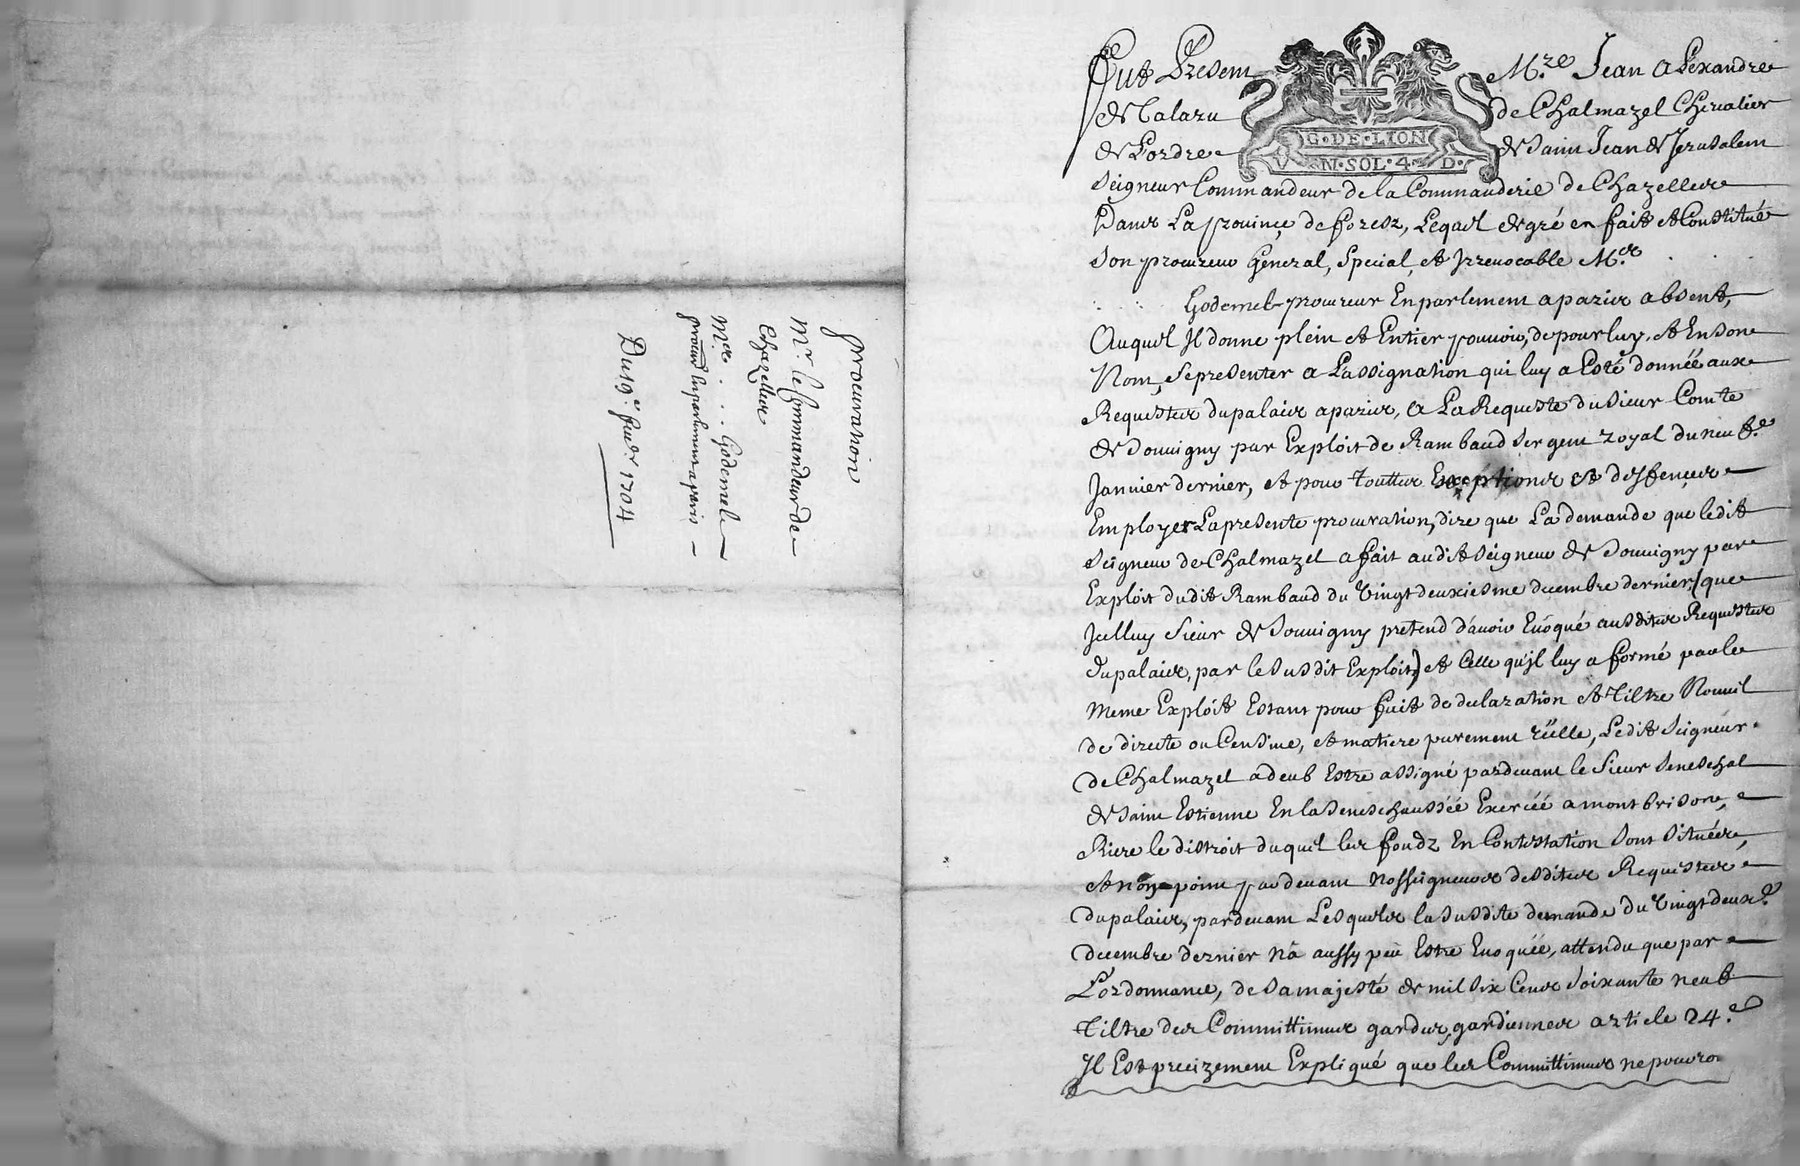 procuration
Mr. le Commandeur de
Chazelles
Mre . . . Godemel
procur. en parlement a paris
Du 19e. feuer. 1704
Fut Present Mre. Jean Alexandre
de Talaru de Chalmazel Cheualier
de Lordre de Saint Jean de Jerusalem
G·DE·LION
V N·SOL·4·D·
Seigneur Commandeur de la Commanderie de Chazelles
Dans La prouince de forestz, Lequel de gré en fait et Constitué
Son procureur General, Special, et Irreuocable Me.
Godemel procureur En parlement a paris absent,
Auquel Il donne plein et Entier pouuoir, de pour luy, et En Son
Nom, Se presenter a L'assignation qui luy a Esté donnéé aux
Requestes du palais a paris, a La Requeste du Sieur Comte
de Souuigny par Exploit de Rambaud Sergent royal du neufe.
Januier dernier, et pour touttes Exceptions et deffences
Employer La presente procuration, dire que La demande que ledit
Seigneur de Chalmazel a fait audit Seigneur de Souuigny par
Exploit dudit Rambaud du Vingt deuxiesme decembre dernier (que
Icelluy Sieur de Souuigny pretend d'auoir Euoqué ausdites Requestes
du palais, par le Susdit Exploit) et Celle qu'il luy a formé par le
meme Exploit Estant pour fait de declaration et Tiltre Nouuel
de directe ou Censiue, et matiere purement réélle, Ledit Seigneur
de Chalmazel a deub Estre assigné pardeuant le Sieur Seneschal
de Saint Estienne En la Seneschaussée Exercéé a montbrison,
Riere le distroit duquel les fondz En Contestation Sont Situéés,
et non point pardeuant Nosseigneurs desdites Requestes
du palais, pardeuant Lesquels la Susdite demande du Vingt deuxe.
decembre dernier n'a aussy peu Estre Euoquéé, attendu que par
L'ordonnance, de Sa majesté de mil Six Cents Soixante neuf
Tiltre des Committimus gardes, gardiennes article 24.e
Il Est precizement Expliqué que les Committimus ne pouront